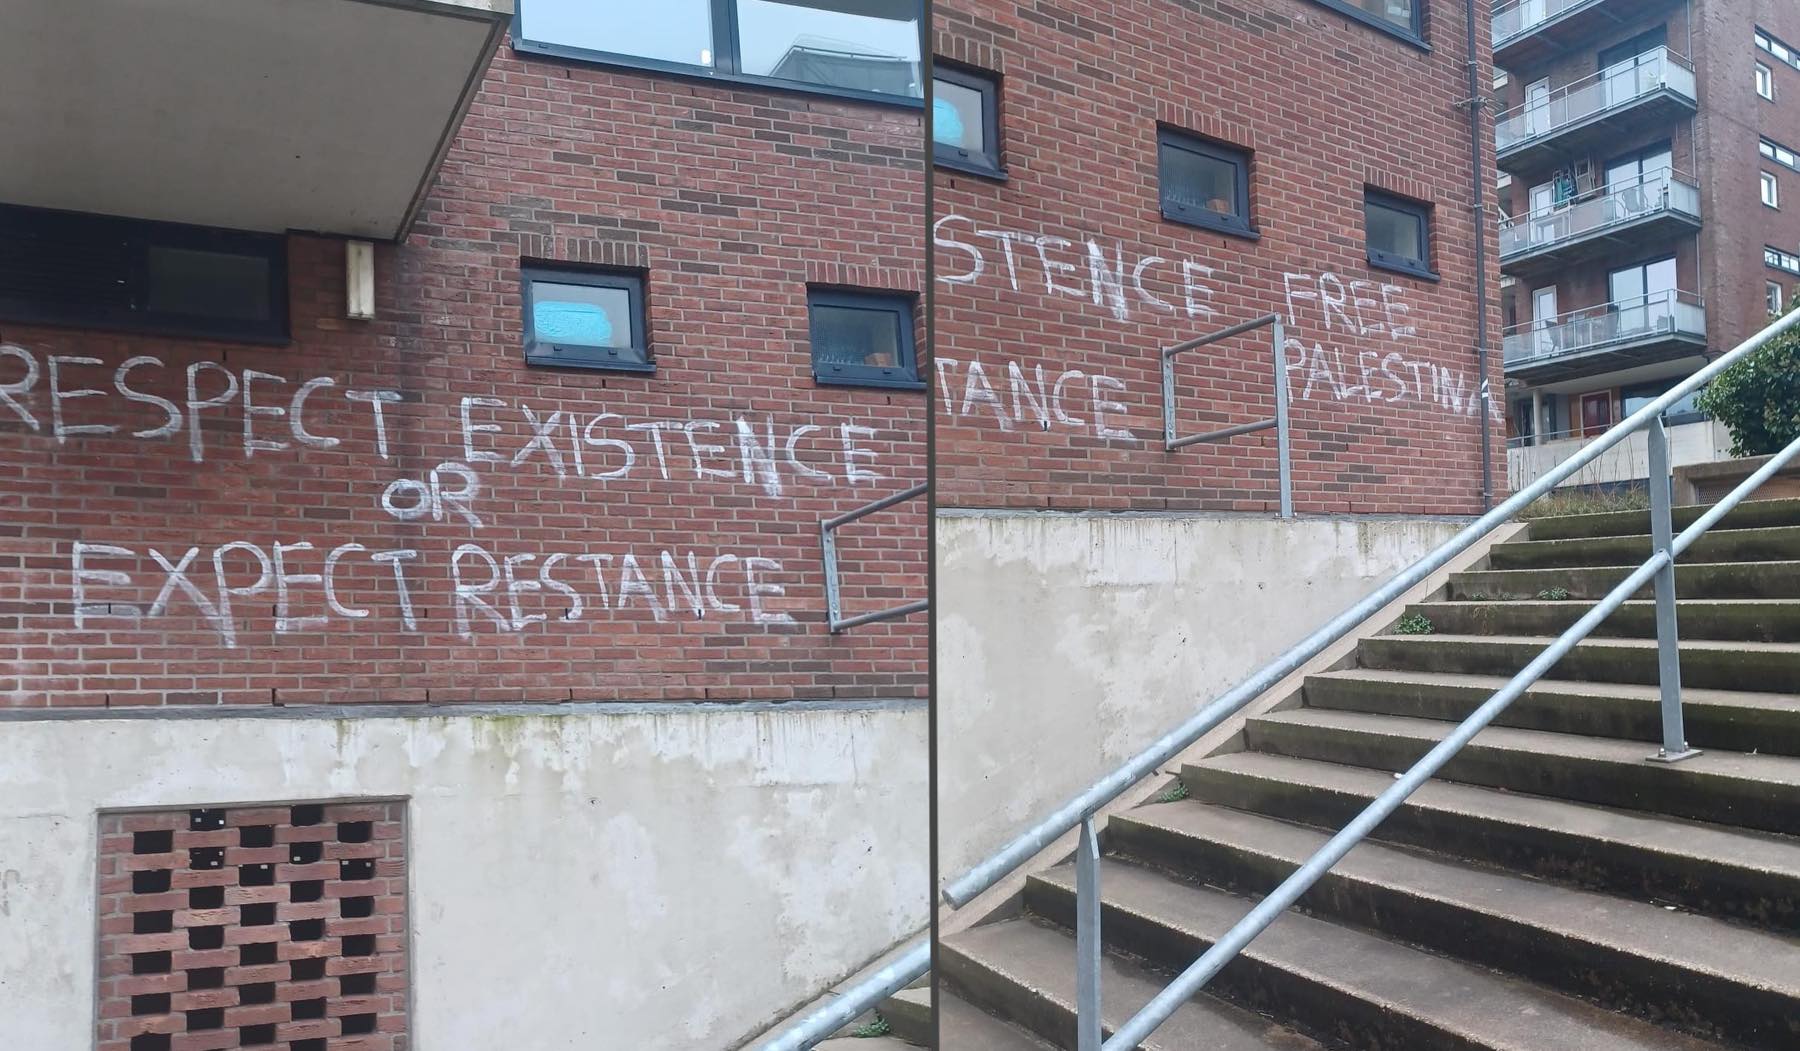 RESPECT EXISTENCE
OR
EXPECT RESTANCE
STENCE
TANCE
FREE
PALESTINA